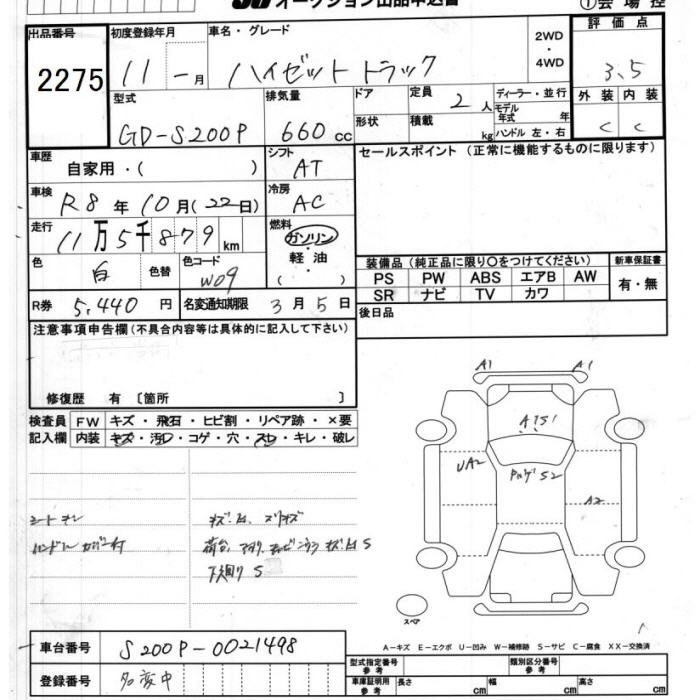 オークション出品申込書
① 会 場 控
出品番号
2275
初度登録年月
11 - 月
車名・グレード
ハイゼット トラック
2WD
・
4WD
評 価 点
3.5
型式
GD-S200P
排気量
660 cc
ドア
形状
定員
2 人
積載
kg
ディーラー・並行
モデル
年式 年
ハンドル 左・右
外 装
C
内 装
C
車歴
自家用・( )
シフト
AT
セールスポイント (正常に機能するものに限ります)
車検
R8 年 10 月 (22 日)
冷房
AC
走行
11 万 5 千 8 7 9 km
燃料
ガソリン
・
軽 油
・
( )
色
白
色替
色コード
W09
装備品 (純正品に限り〇をつけてください)
PS PW ABS エアB AW
SR ナビ TV カワ
新車保証書
有・無
R券
5,440 円
名変通知期限
3 月 5 日
後日品
注意事項申告欄(不具合内容等は具体的に記入して下さい)
修復歴 有 〔箇所 〕
検査員
記入欄
FW キズ・飛石・ヒビ割・リペア跡・×要
内装 キズ・汚レ・コゲ・穴・スレ・キレ・破レ
A1 A1
A1S1
UA2
S2
A2
キズ
下廻り S
スペア
A-キズ E-エクボ U-凹み W-補修跡 S-サビ C-腐食 XX-交換済
車台番号
S200P-0021498
登録番号
名変中
型式指定番号
参考
類別区分番号
参考
車庫証明用
参考
長さ cm
幅 cm
高さ cm